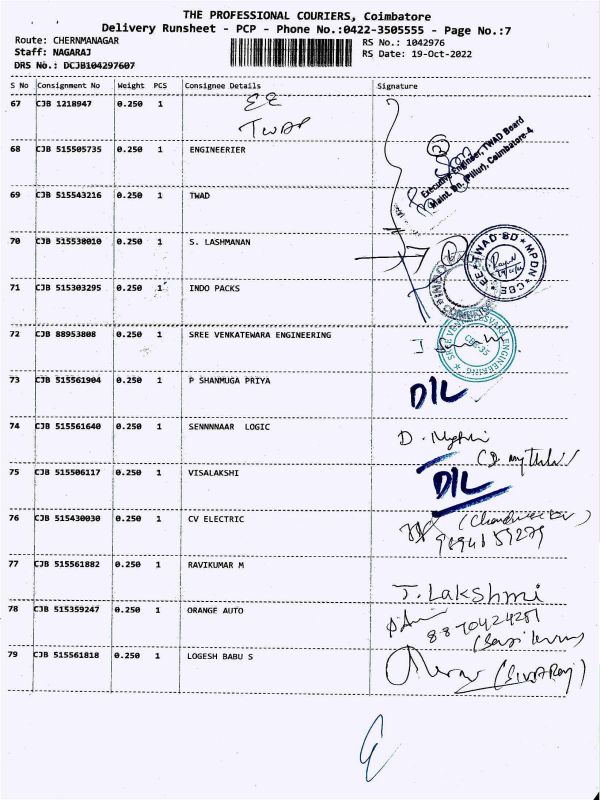 THE PROFESSIONAL COURIERS, Coimbatore
Delivery Runsheet - PCP - Phone No.:0422-3505555 - Page No.:7
Route: CHERNMANAGAR RS No.: 1042976
Staff: NAGARAJ RS Date: 19-Oct-2022
DRS No.: DCJB104297607
S No Consignment No Weight PCS Consignee Details Signature
67 CJB 1218947 0.250 1 EE
TWAD
Executive Engineer, TWAD Board
Maint. Dn. (Pillur), Coimbatore-4
68 CJB 515505735 0.250 1 ENGINEERIER
69 CJB 515543216 0.250 1 TWAD
70 CJB 515538010 0.250 1 S. LASHMANAN
EE ★ TWAD BD ★ MPDN ★ CBE
71 CJB 515303295 0.250 1 INDO PACKS
72 CJB 88953808 0.250 1 SREE VENKATEWARA ENGINEERING
CBE-35
73 CJB 515561904 0.250 1 P SHANMUGA PRIYA D/L
74 CJB 515561640 0.250 1 SENNNNAAR LOGIC D.
75 CJB 515506117 0.250 1 VISALAKSHI D/L
76 CJB 515430030 0.250 1 CV ELECTRIC
77 CJB 515561882 0.250 1 RAVIKUMAR M J. Lakshmi
78 CJB 515359247 0.250 1 ORANGE AUTO
79 CJB 515561818 0.250 1 LOGESH BABU S